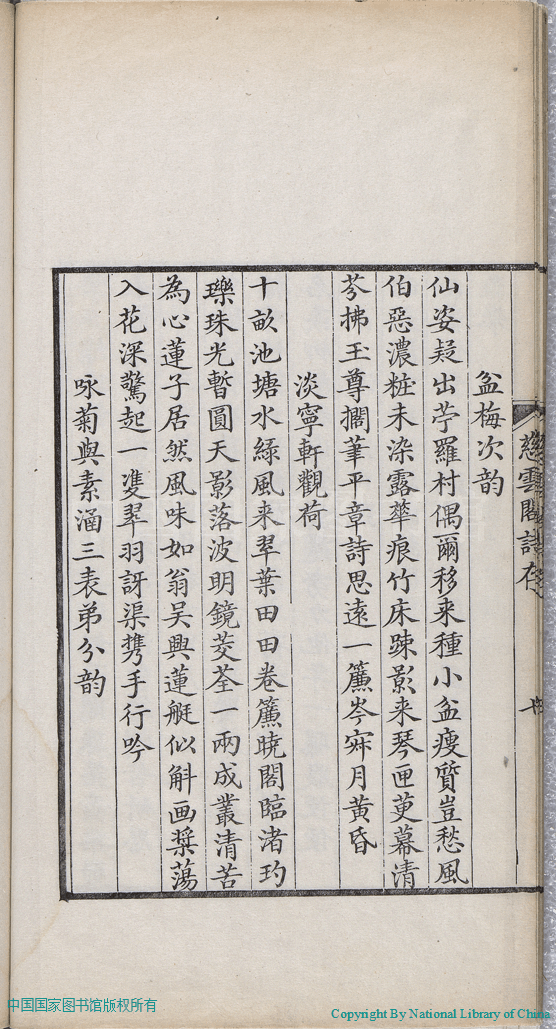 慈雲閣詩存
盆梅次韵
仙姿疑出苧羅村偶爾移来種小盆瘦質豈愁風
伯惡濃粧未染露華痕竹床踈影来琴匣茰幕清
芬拂玉尊擱筆平章詩思遠一簾岑寂月黄昏
淡寧軒觀荷
十畝池塘水綠風来翠葉田田卷簾曉閣臨渚玓
瓅珠光暫圓天影落波明鏡茭荃一兩成叢清苦
為心蓮子居然風味如翁吴興蓮艇似斛画槳蕩
入花深驚起一隻翠羽訝渠携手行吟
咏菊與素涵三表弟分韵
中国国家图书馆版权所有
Copyright By National Library of China